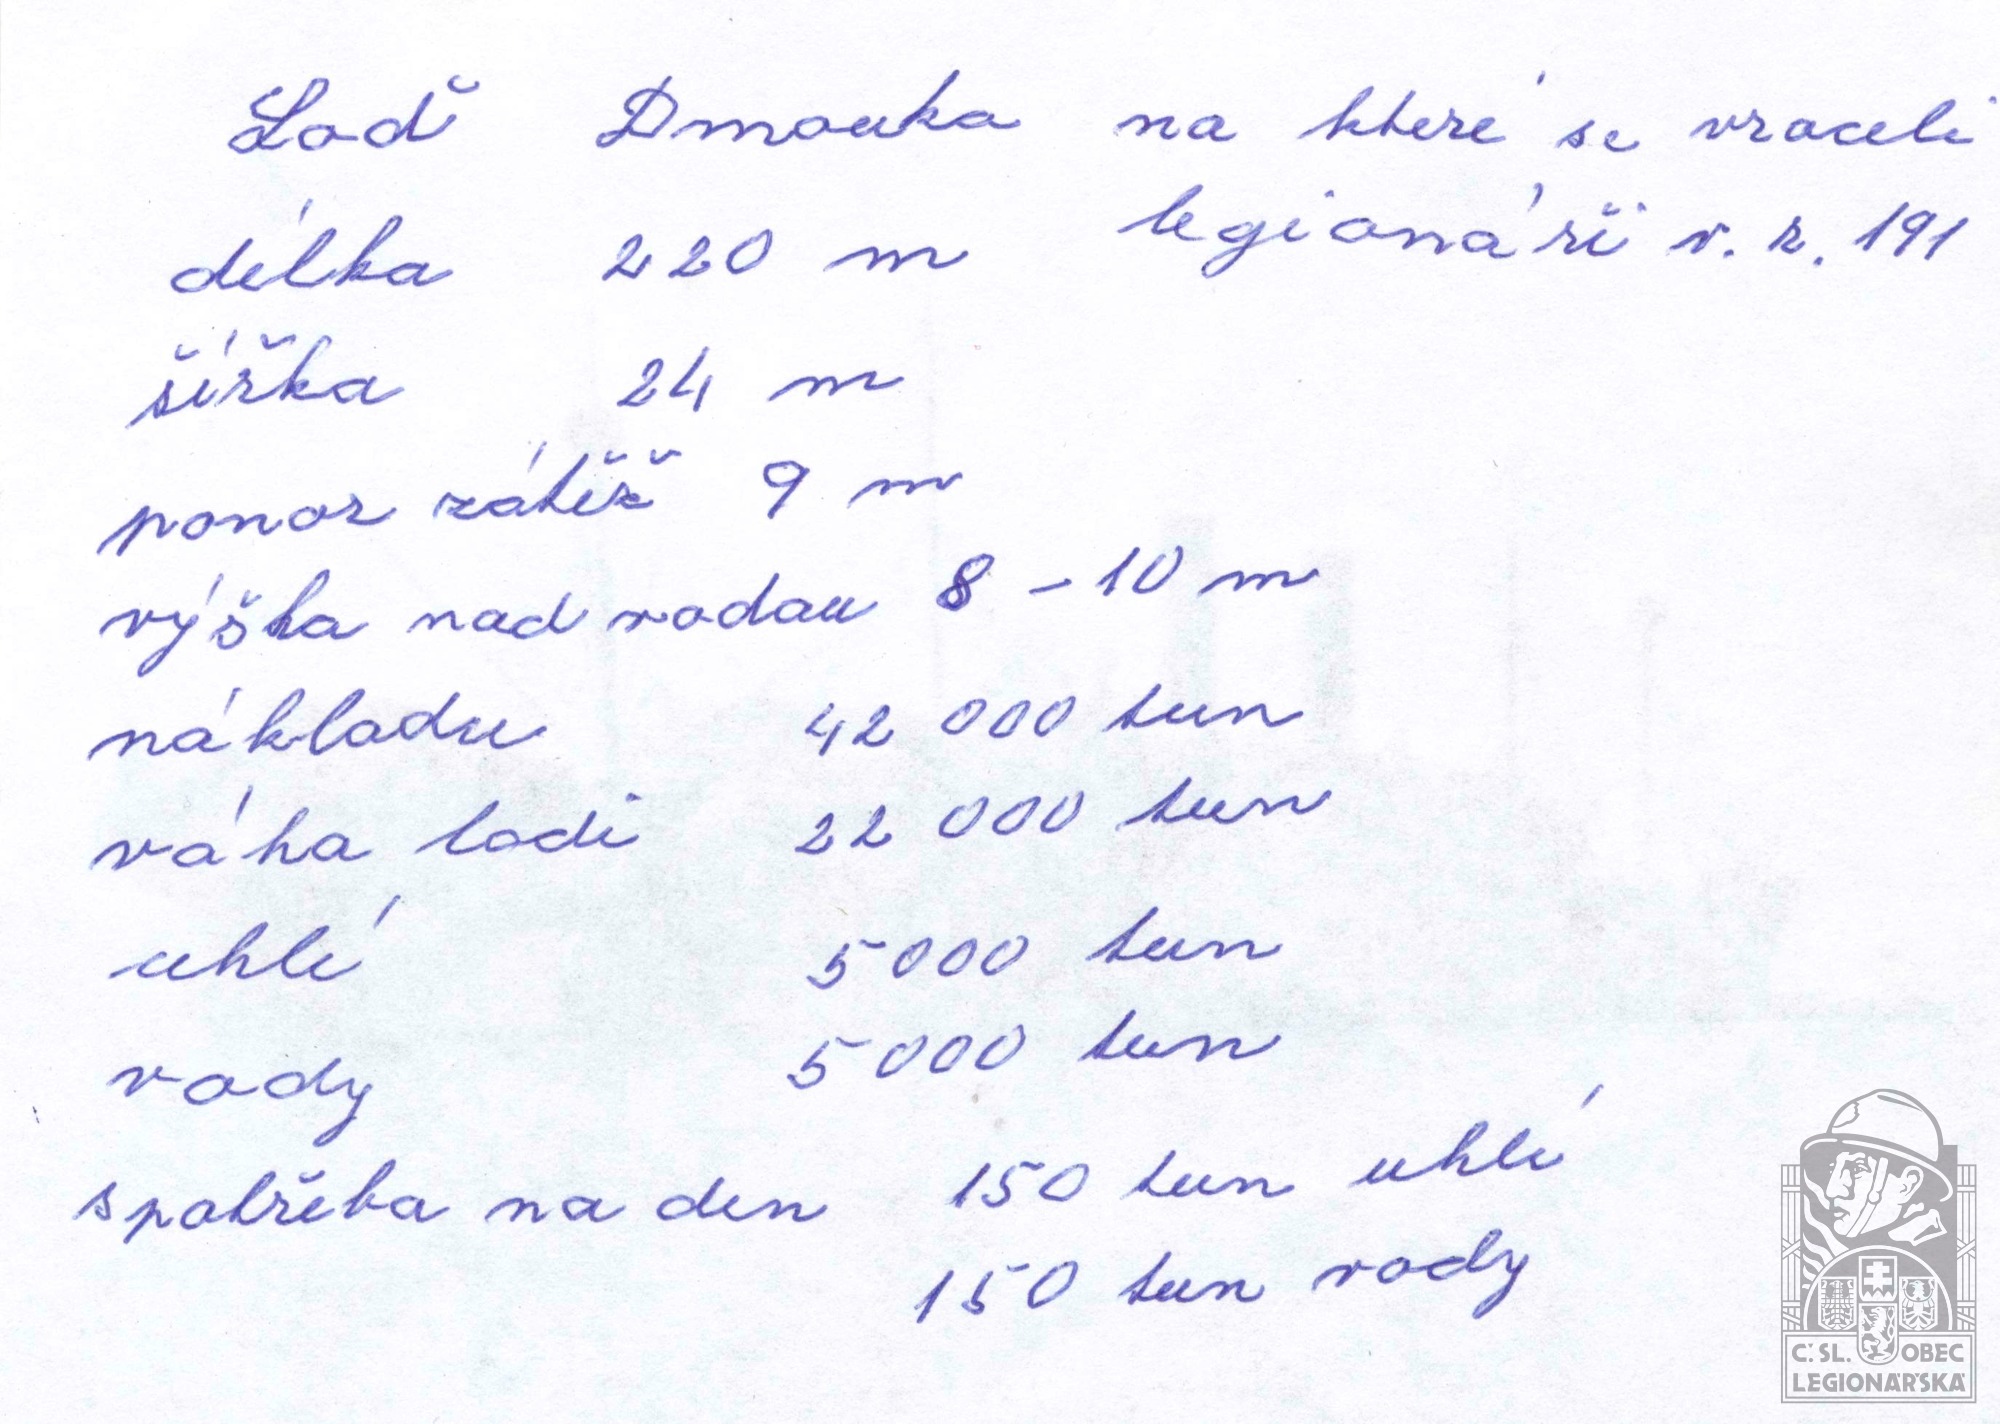 Loď Dmouka na které se vraceli
délka 220 m legionáři v. r. 191
šířka 24 m
ponor zátěž 9 m
výška nad vodou 8 – 10 m
nákladu 42 000 tun
váha lodi 22 000 tun
uhlí 5000 tun
vody 5000 tun
spotřeba na den 150 tun uhlí
150 tun vody
Č. SL. OBEC
LEGIONÁŘSKÁ